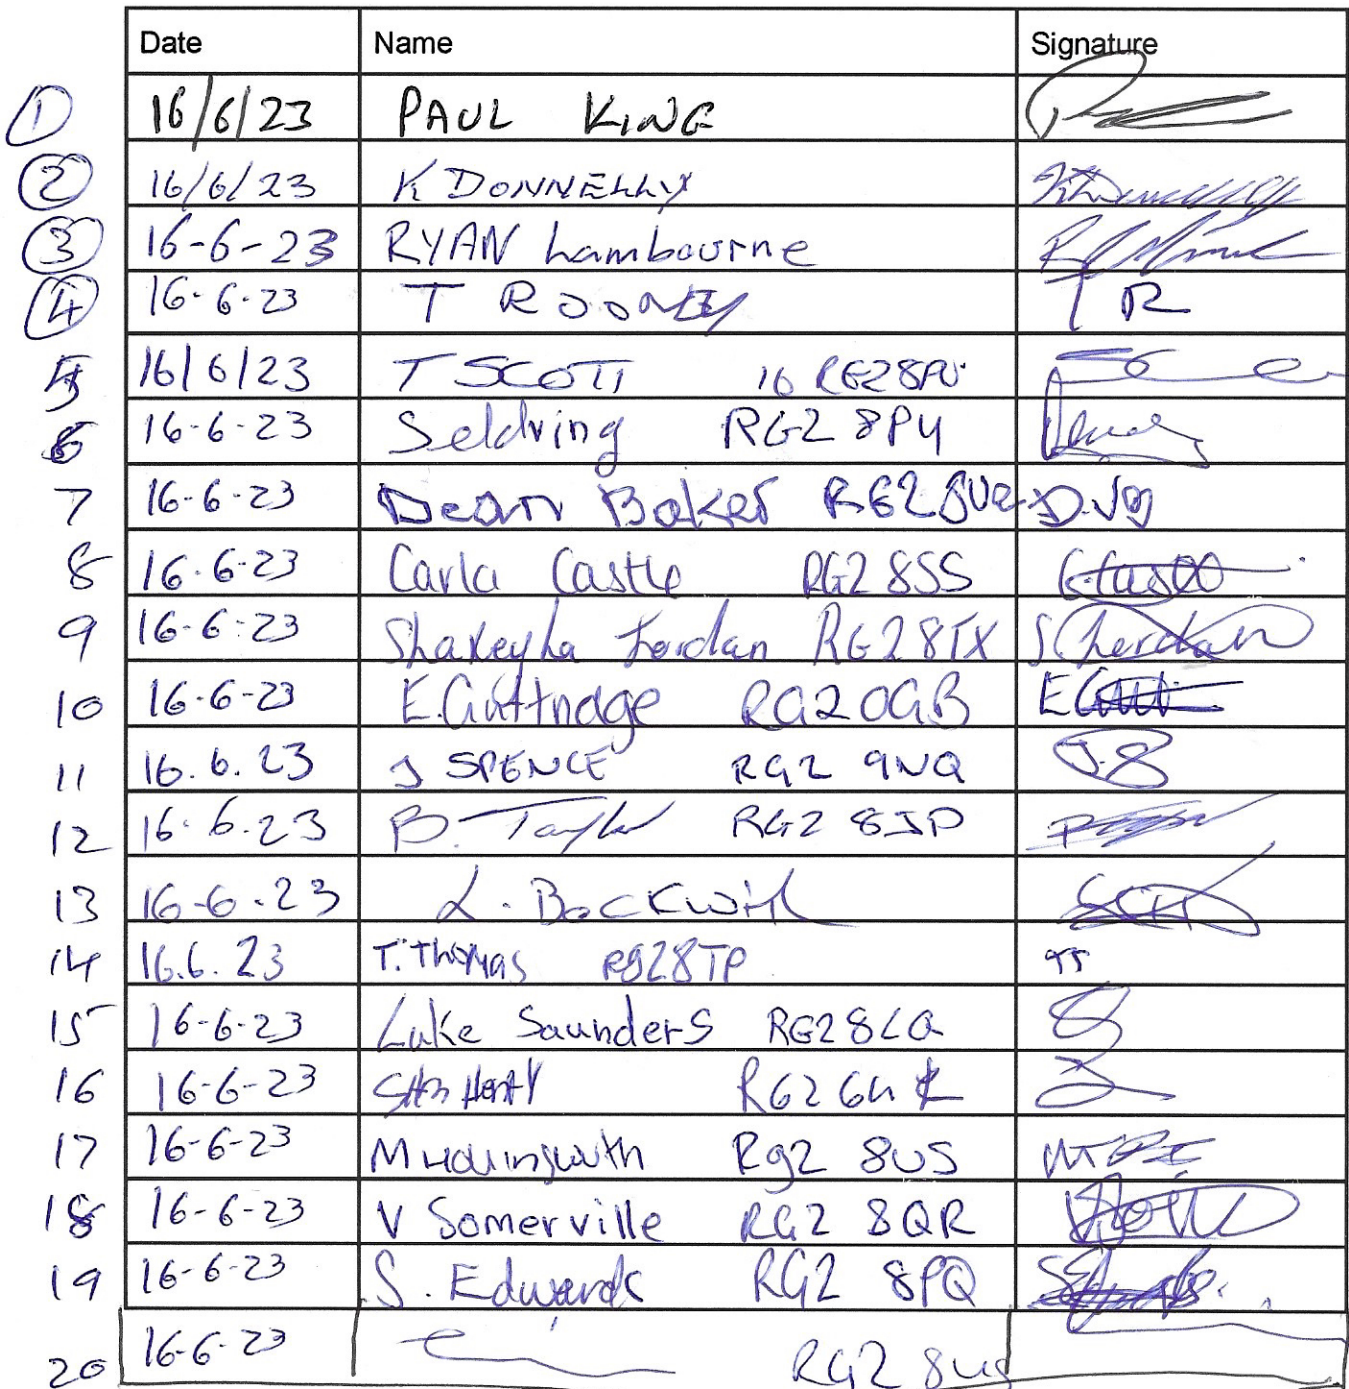 Date Name Signature
1 16/6/23 PAUL KING
2 16/6/23 K DONNELLY
3 16-6-23 RYAN Lambourne
4 16.6.23 T ROONEY T R
5 16/6/23 T SCOTT 16 RG28PU
6 16-6-23 Seldring RG2 8PY
7 16-6-23 Dean Baker RG2 8UE
8 16.6-23 Carla Castle RG2 8SS C.Castle
9 16-6-23 Shakeyla Jordan RG2 8TX
10 16-6-23 E.Guttridge RG2 0GB
11 16.6.23 J SPENCE RG2 9NQ J.S
12 16.6.23 B. Taylor RG2 8JP
13 16-6-23 L.
14 16.6.23 T.Thomas Rg28TP TT
15 16-6-23 Luke Saunders RG28LQ
16 16-6-23
17 16-6-23 M Hollingsworth Rg2 8US
18 16-6-23 V Somerville RG2 8QR
19 16-6-23 S. Edwards RG2 8PQ
20 16-6-23 RG2 8US